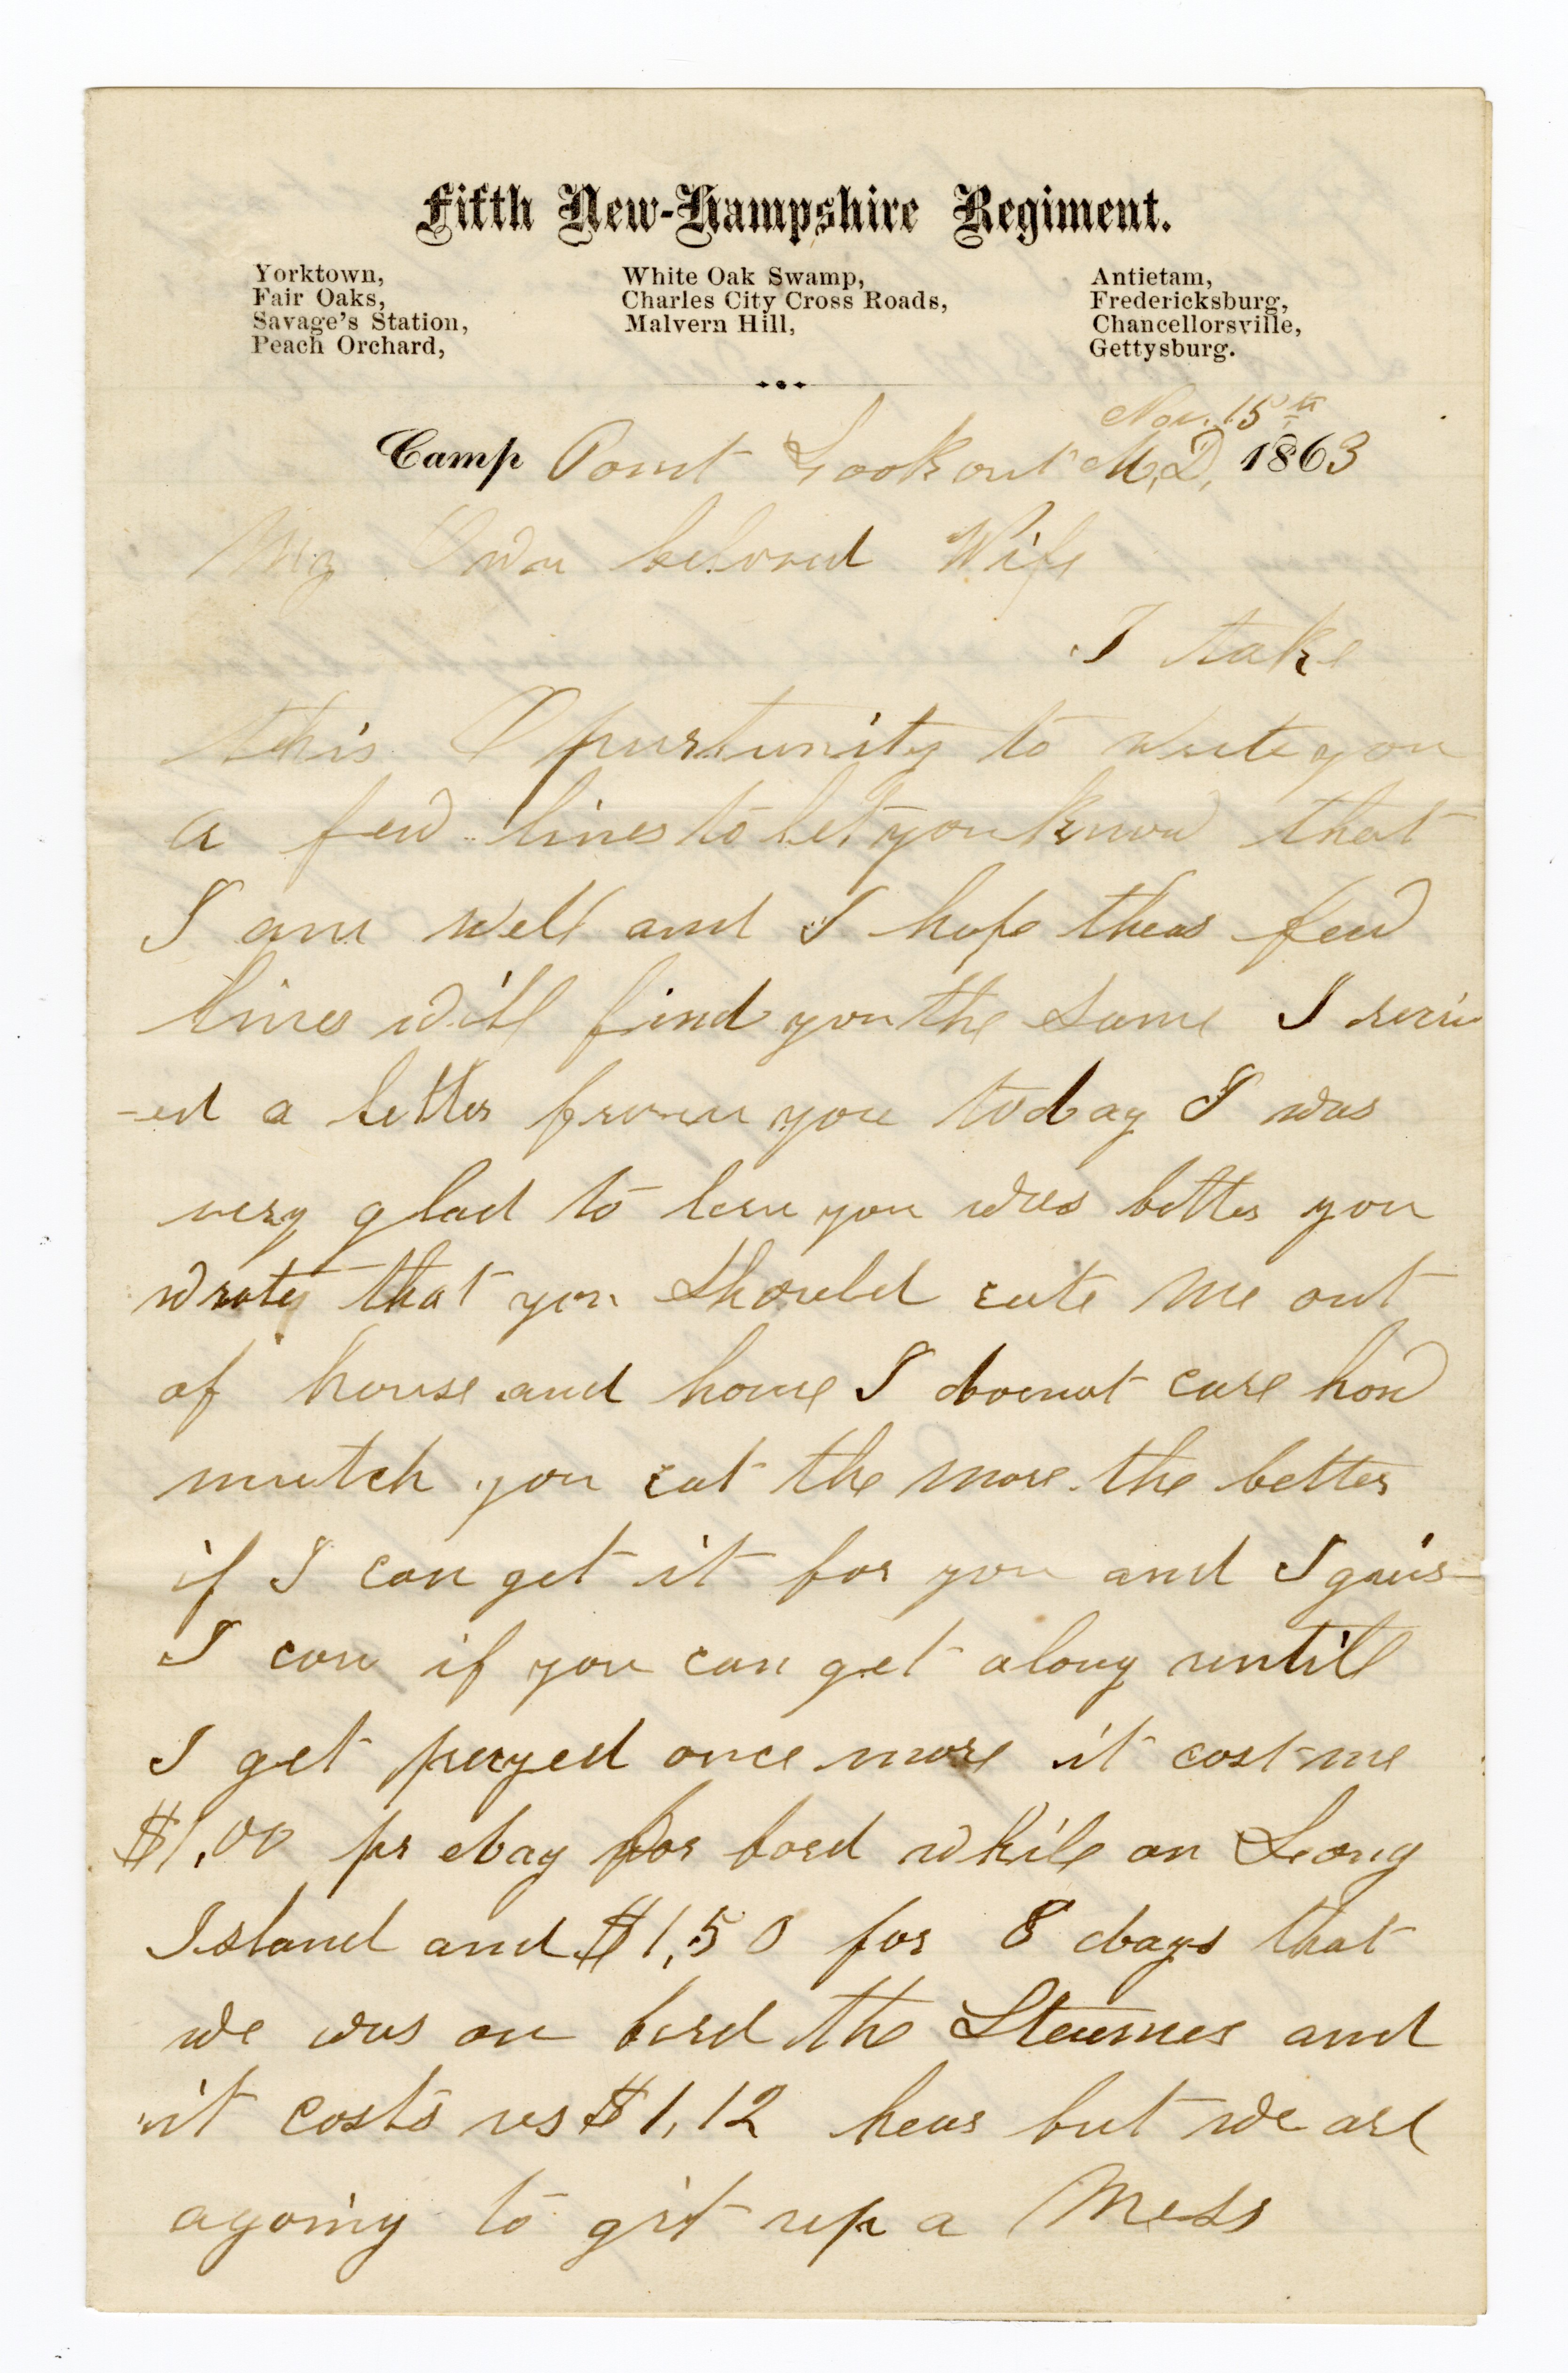 Fifth New-Hampshire Regiment.
Yorktown,
Fair Oaks,
Savage's Station,
Peach Orchard,
White Oak Swamp,
Charles City Cross Roads,
Malvern Hill,
Antietam,
Fredericksburg,
Chancellorsville,
Gettysburg.
Nov. 15th
Camp Point Lookout M,D, 1863
My Own beloved Wife
I take
this Opurtunity to write you
a few lines to let you know that
I am well and I hope theas few
lines will find you the same I
-ed a letter from you today I was
very glad to lern you was better you
wrote that you should eate me out
of house and home I do not care how
mutch you eat the more the better
if I can get it for you and I
I can if you can get along untill
I get payed once more it cost me
$1,00 pr day for bord while on Long
Island and $1,50 for 8 days that
we was on bord the Steamer and
it costs us $1,12 hear but we are
agoing to git up a Mess